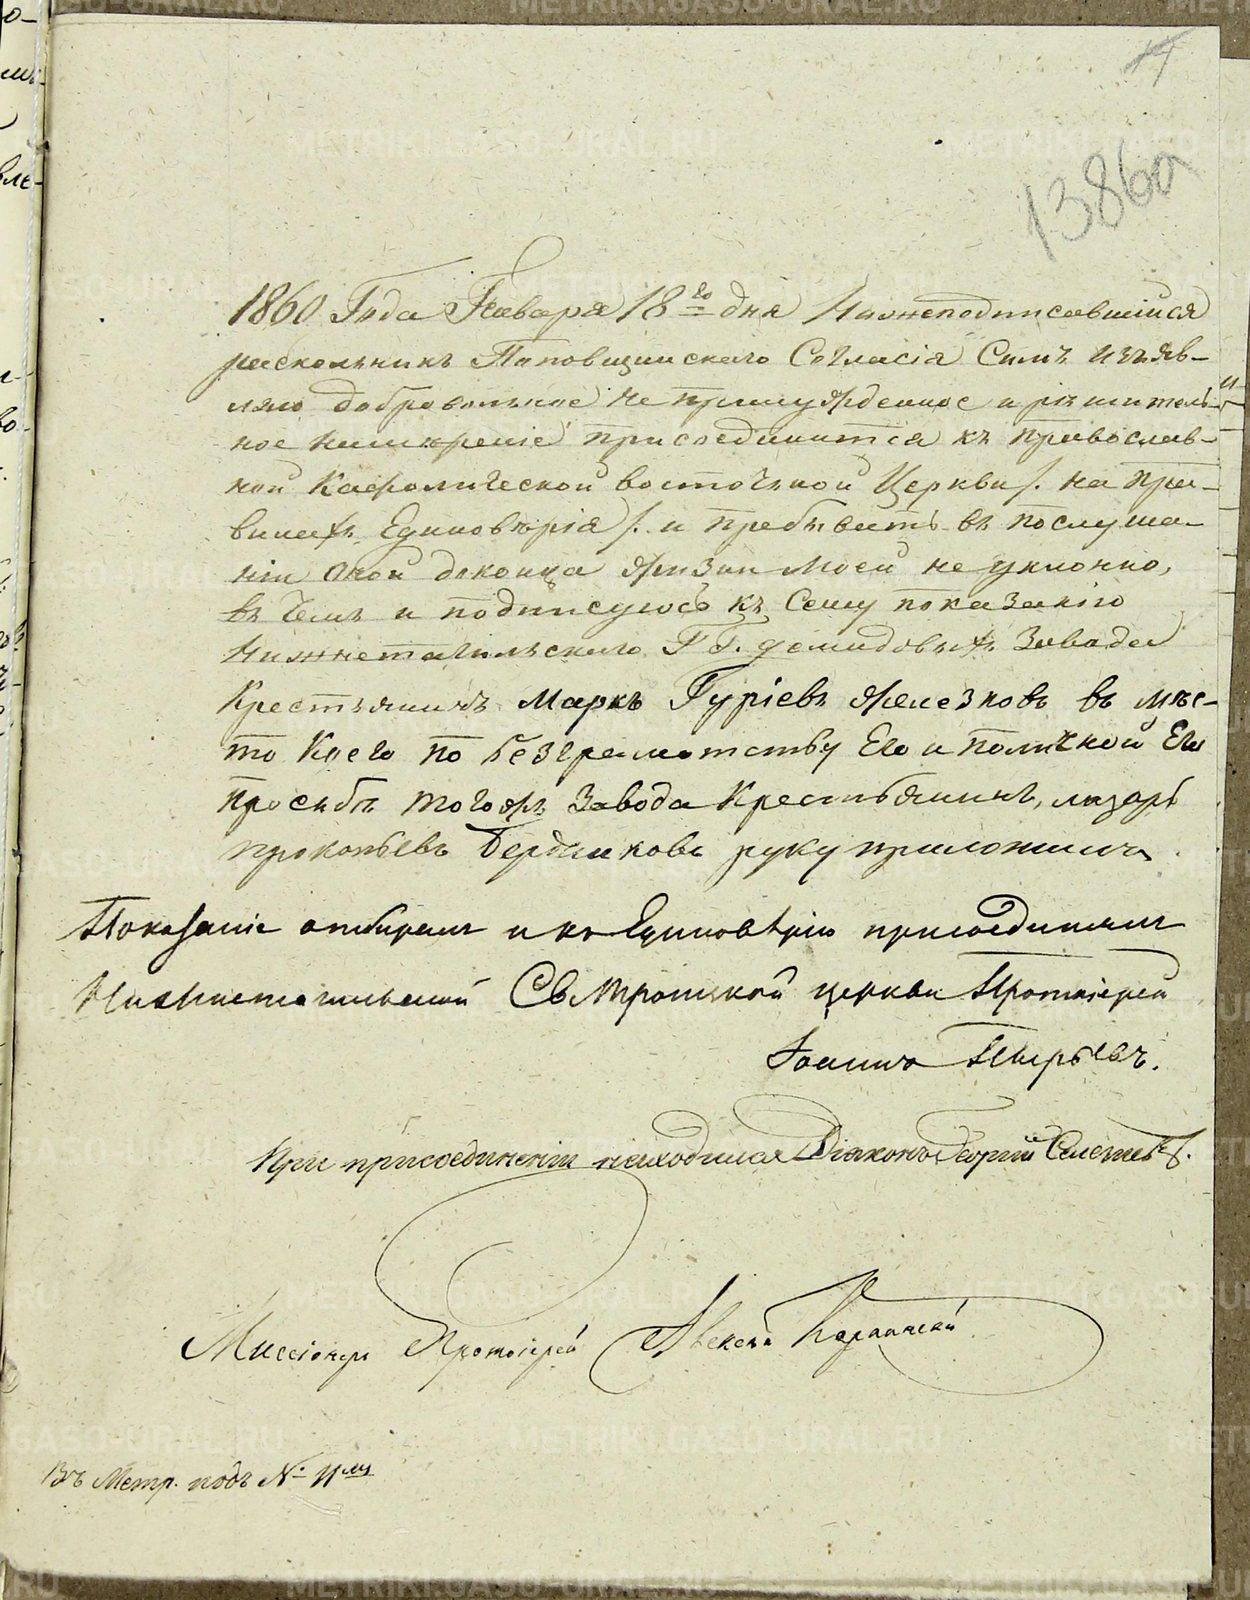 138об
1860 Года Генваря 18го дня Нижеподписавшійся
раскольникъ Поповщинскаго Согласія Симъ изъяв-
ляю добровольное не принужденное и рѣшитель-
ное намѣреніе присоединится къ православ-
ной Кафолической восточной Церкви /. на пра-
вилахъ Единовѣрія /. и пребывать въ послуша-
ніи оной доконца жизни моей не уклонно,
въ чемъ и подписуюсь къ Сему показанію
Нижнетагильскаго Г Г. Демидовыхъ Завода
Крестьянинъ Маркъ Гуріевъ Железковъ въ мѣс-
то коего по безграмотству Его и поличной Его
просьбѣ тогожъ Завода Крестьянинъ, лазарь
прокопьевъ Бердниковъ руку приложилъ
Показаніе отбиралъ и къ Единовѣрію присоединялъ
Нижнетагильской Св. Троицкой церкви Протоіерей
Іоаннъ Пырьевъ.
При присоединеніи находился Діаконъ Георгій
Миссіонеръ Протоіерей
Въ Метр. подъ № 11мъ
METRIKI.GASO-URAL.RU